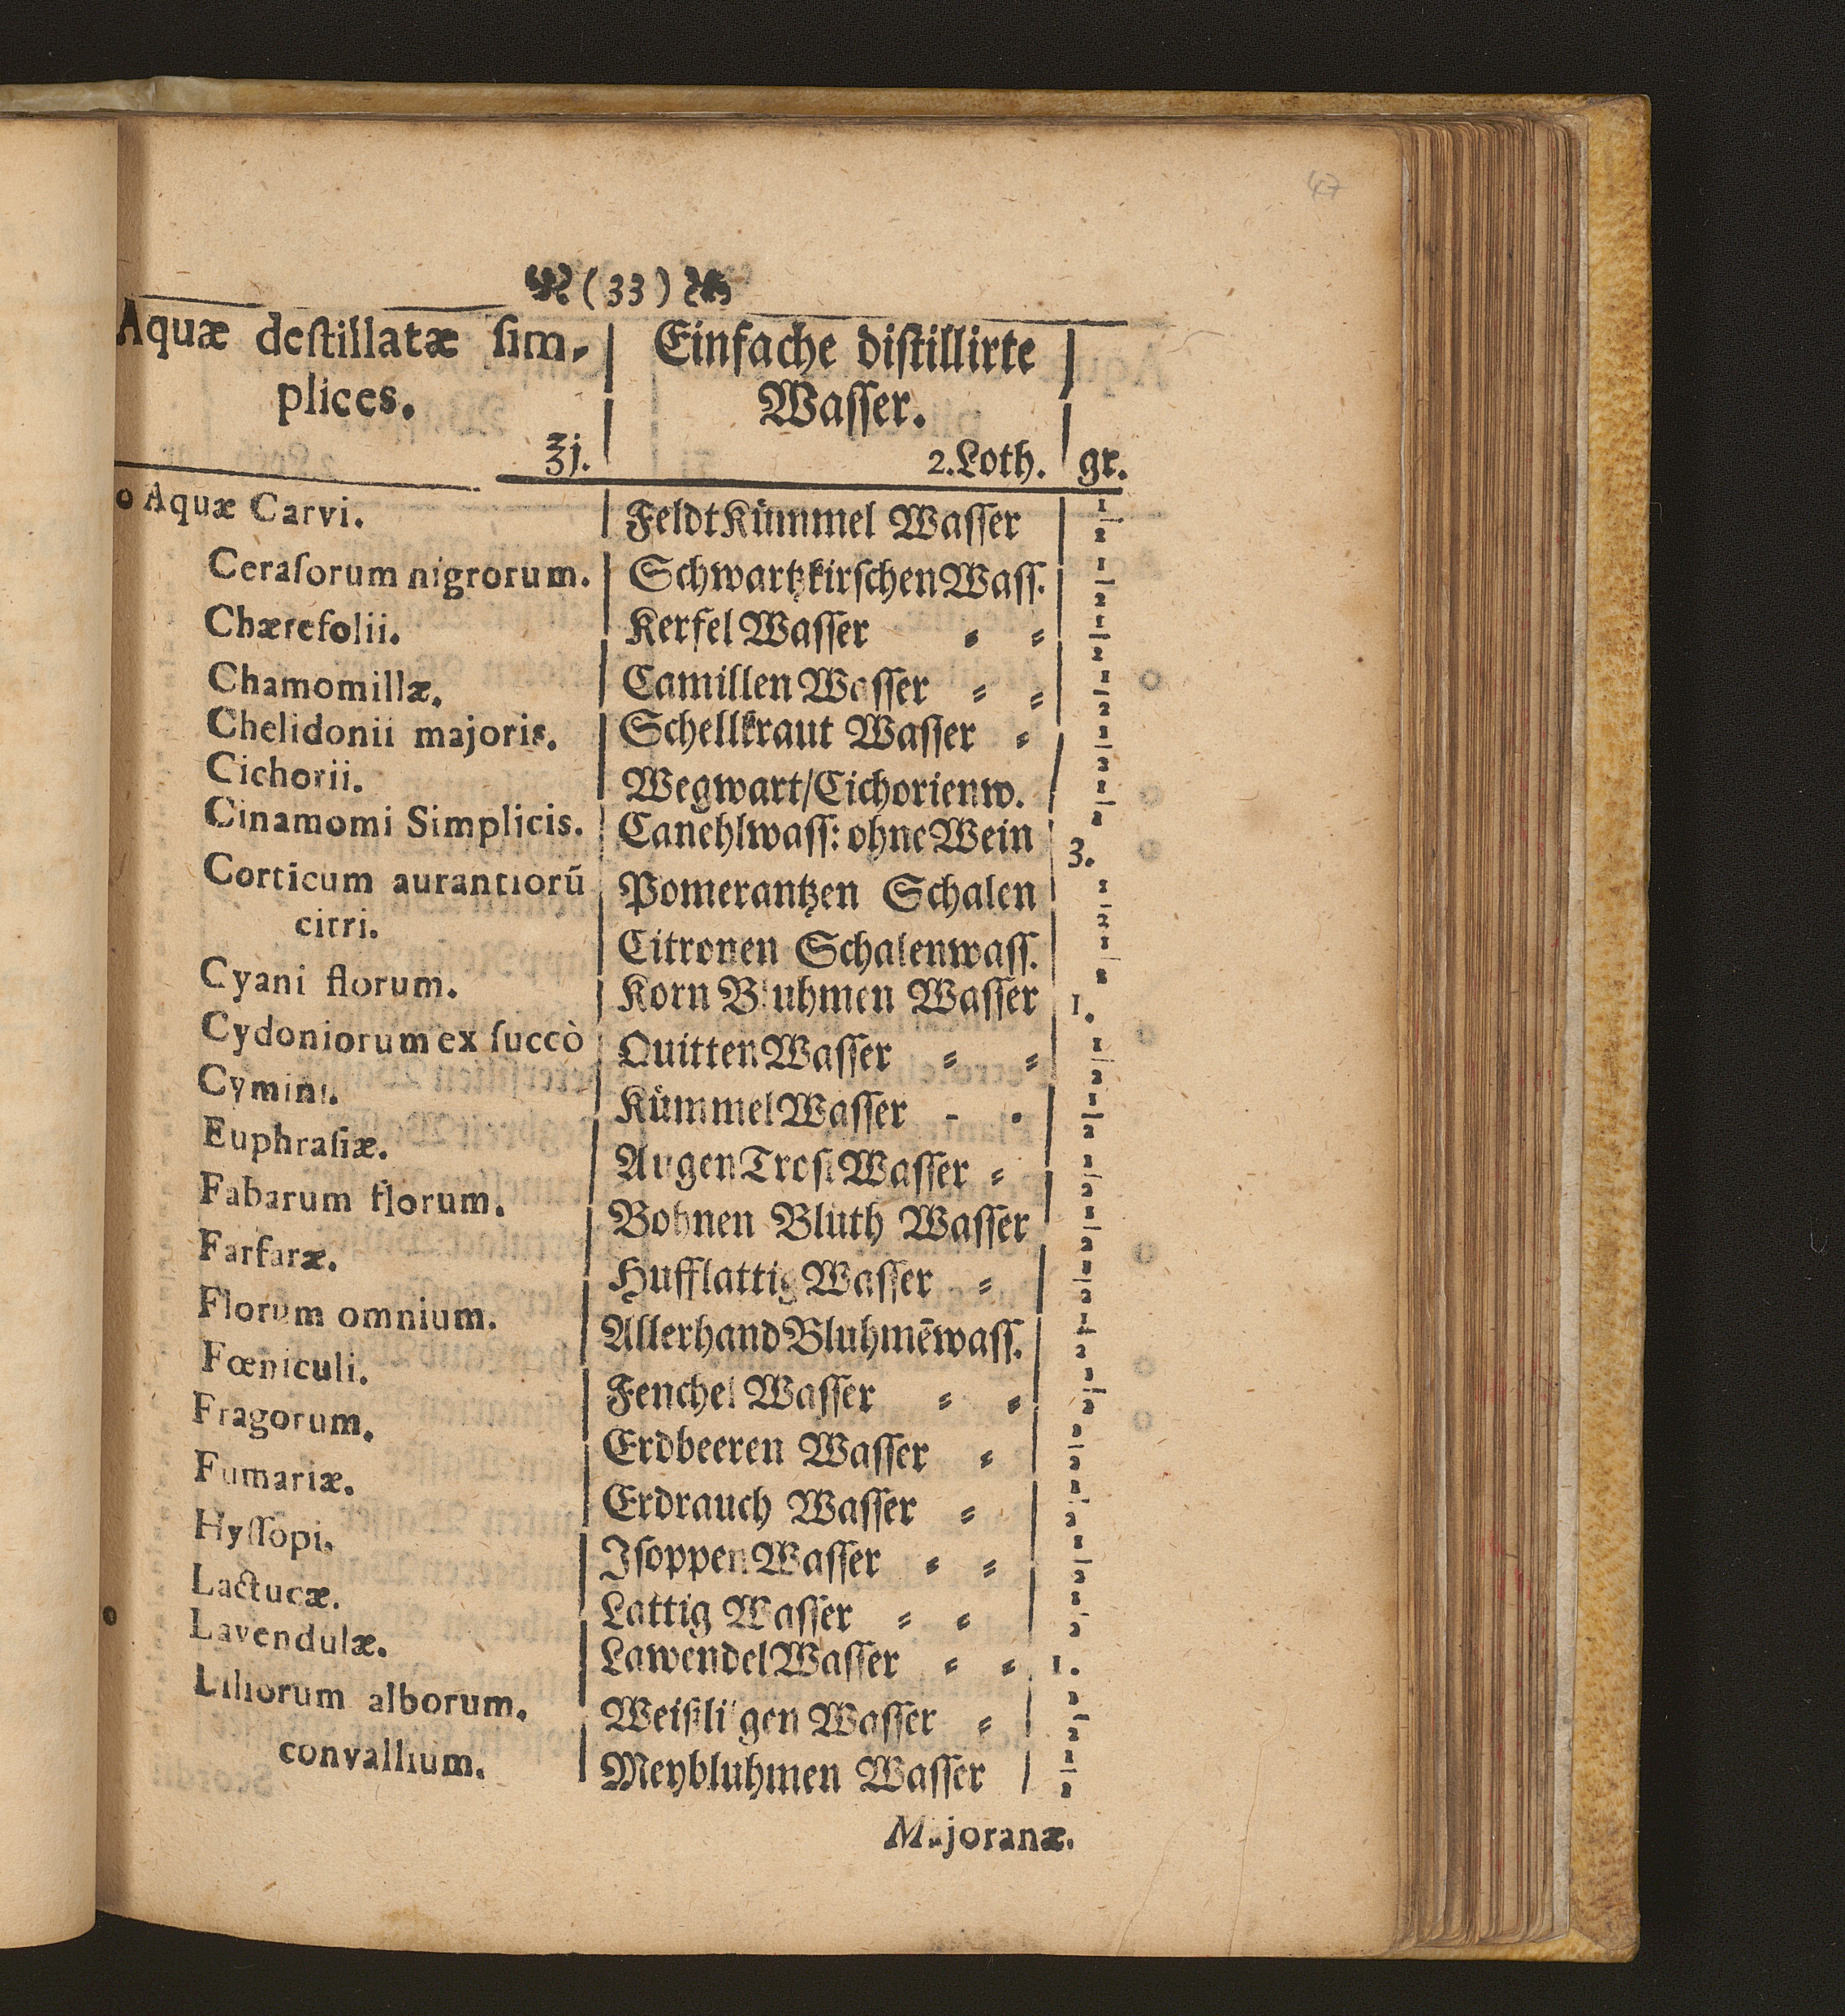 47
(33)
Aquæ deſtillatæ ſim- | Einfache diſtillirte
plices. | Waſſer.
ʒj. | 2.Loth. | gr.
o Aquæ Carvi. | Feldt Kümmel Waſſer | 1/2
Ceraſorum nigrorum. | Schwartzkirſchen Waſſ. | 1/2
Chærefolii. | Kerfel Waſſer | 1/2
Chamomillæ. | Camillen Waſſer | 1/2
Chelidonii majoris. | Schellkraut Waſſer | 1/2
Cichorii. | Wegwart/Cichorienw. | 1/2
Cinamomi Simplicis. | Canehlwaſſ: ohne Wein | 3.
Corticum aurantiorū | Pomerantzen Schalen | 1/2
citri. | Citronen Schalenwaſſ. | 1/2
Cyani florum. | Korn Bluhmen Waſſer | 1.
Cydoniorum ex ſuccò | Quitten Waſſer | 1/2
Cymini. | Kümmel Waſſer | 1/2
Euphraſiæ. | Augen Troſt Waſſer | 1/2
Fabarum florum. | Bohnen Bluth Waſſer | 1/2
Farfaræ. | Hufflattig Waſſer | 1/2
Florum omnium. | Allerhand Bluhmēwaſſ. | 1/2
Fœniculi. | Fenchel Waſſer | 1/2
Fragorum. | Erdbeeren Waſſer | 1/2
Fumariæ. | Erdrauch Waſſer | 1/2
Hyſſopi. | Iſoppen Waſſer | 1/2
Lactucæ. | Lattig Waſſer | 1/2
Lavendulæ. | Lawendel Waſſer | 1.
Liliorum alborum. | Weißliligen Waſſer | 1/2
convallium. | Meybluhmen Waſſer | 1/2
Majoranæ.